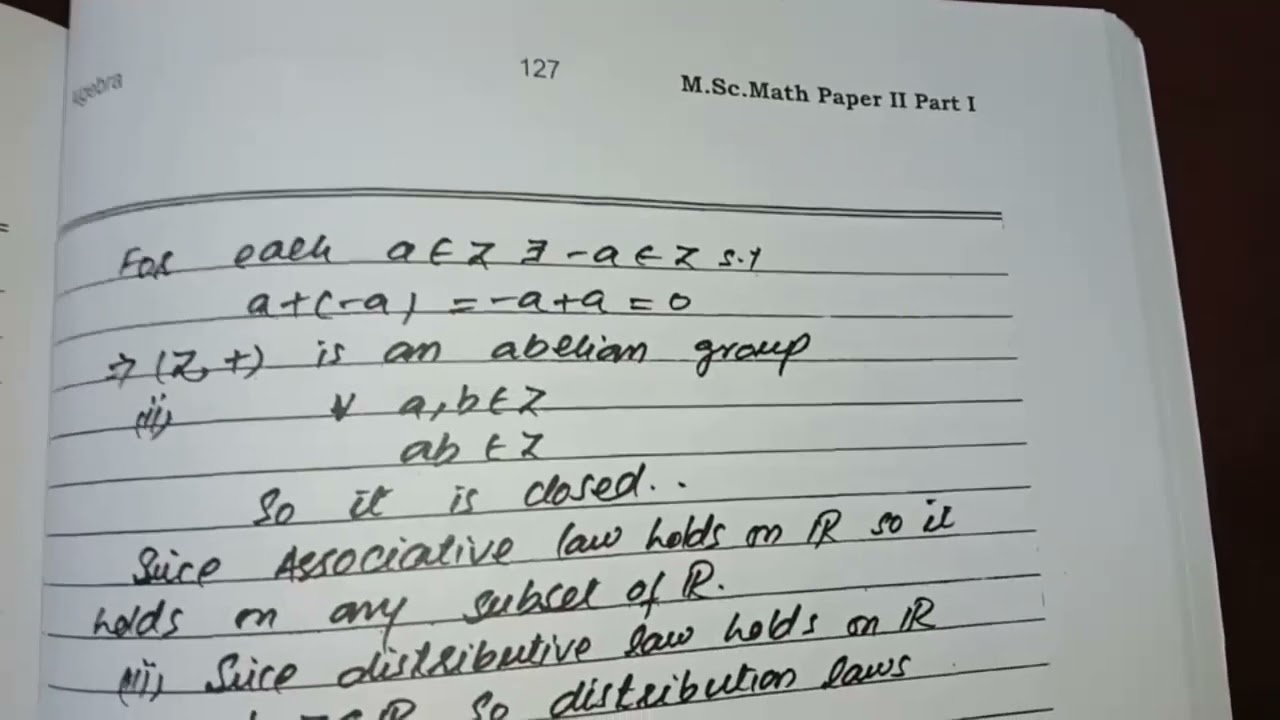 Algebra 127 M.Sc.Math Paper II Part I
For each a ∈ Z ∃ -a ∈ Z s.t
a+(-a) = -a+a = 0
⇒ (Z, +) is an abelian group
(ii) ∀ a,b ∈ Z
ab ∈ Z
So it is closed..
Suice Associative law holds on ℝ so it
holds on any subset of ℝ.
(iii) Suice distributive law holds on ℝ
ℝ So distribution laws